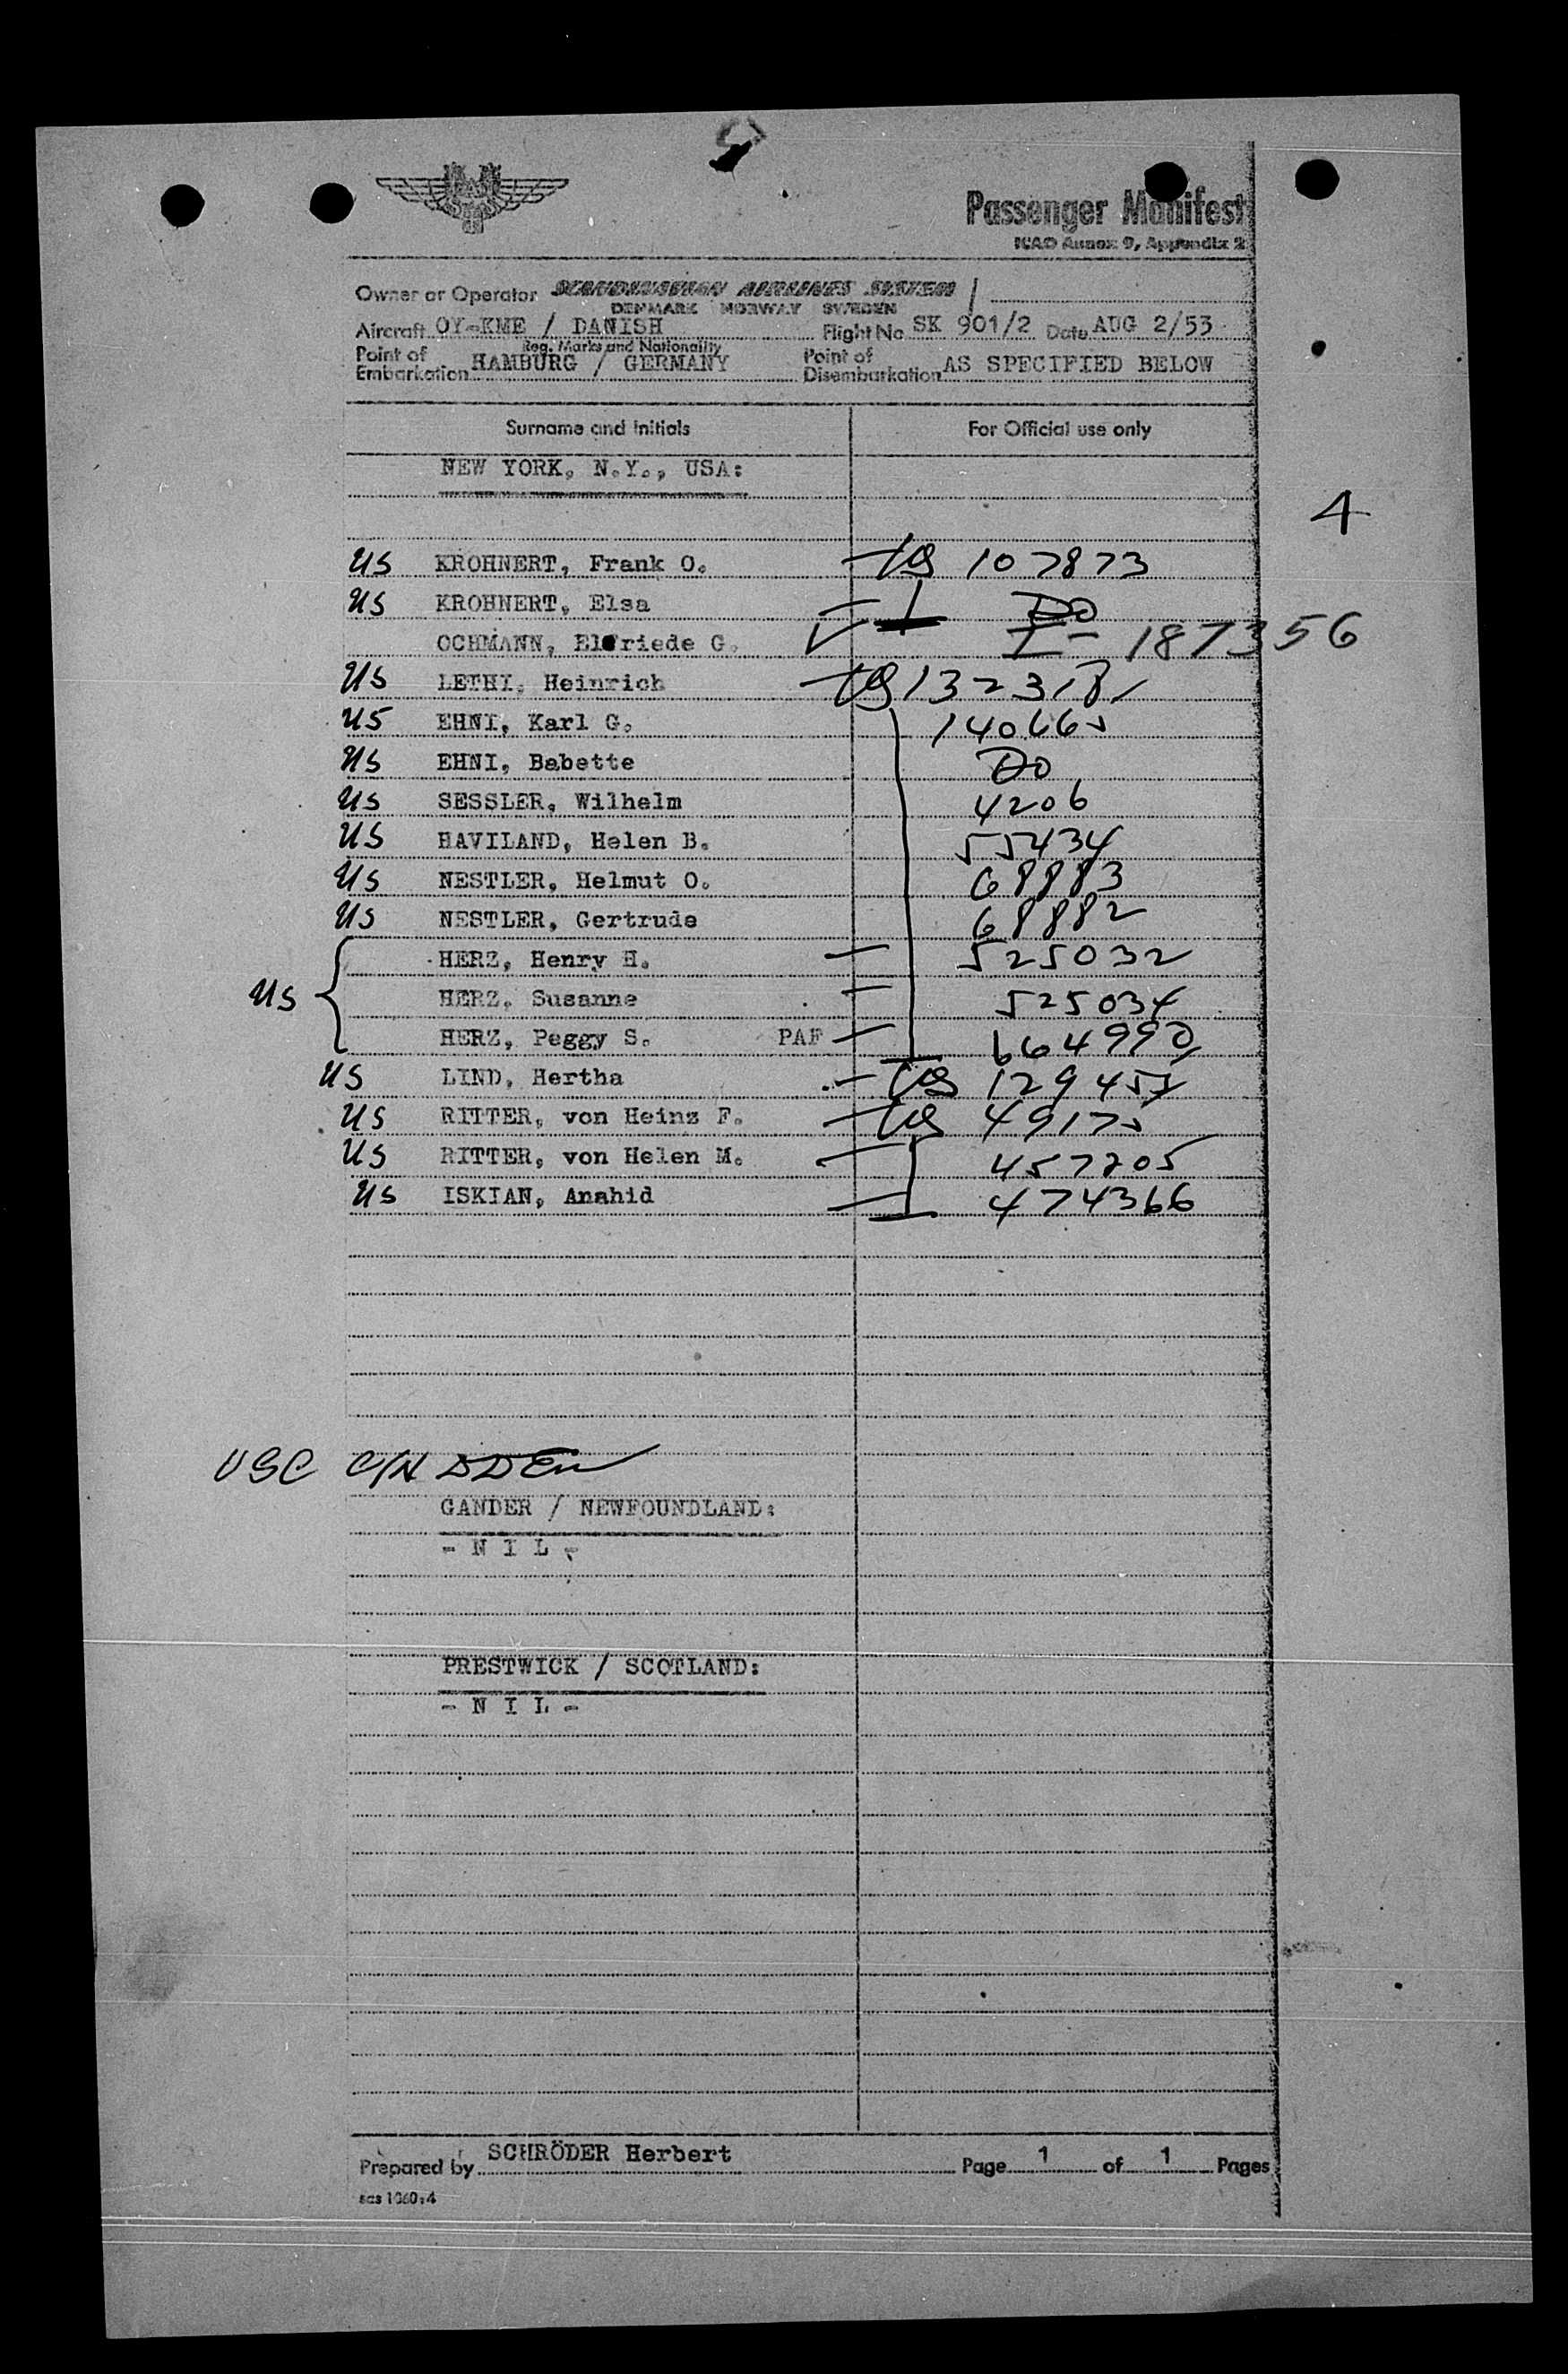 Passenger Manifest
ICAO Annex 9, Appendix 2
Owner or Operator SCANDINAVIAN AIRLINES SYSTEM
DENMARK NORWAY SWEDEN
Aircraft OY-KME / DANISH Flight No SK 901/2 Date AUG 2/53
Reg. Marks and Nationality
Point of Embarkation HAMBURG / GERMANY Point of Disembarkation AS SPECIFIED BELOW
Surname and Initials For Official use only
NEW YORK, N.Y., USA:
4
US KROHNERT, Frank O. 107873
US KROHNERT, Elsa DO
OCHMANN, Elfriede G. I- 187356
US LETHI, Heinrich 132318
US EHNI, Karl G. 140665
US EHNI, Babette DO
US SESSLER, Wilhelm 4206
US HAVILAND, Helen B. 55434
US NESTLER, Helmut O. 68883
US NESTLER, Gertrude 68882
HERZ, Henry H. 525032
US HERZ, Susanne 525034
HERZ, Peggy S. PAF 664990
US LIND, Hertha 129455
US RITTER, von Heinz F. 49175
US RITTER, von Helen M. 457205
US ISKIAN, Anahid 474366
USC
GANDER / NEWFOUNDLAND:
- N I L -
PRESTWICK / SCOTLAND:
- N I L -
Prepared by SCHRÖDER Herbert Page 1 of 1 Pages
sas 1060:4